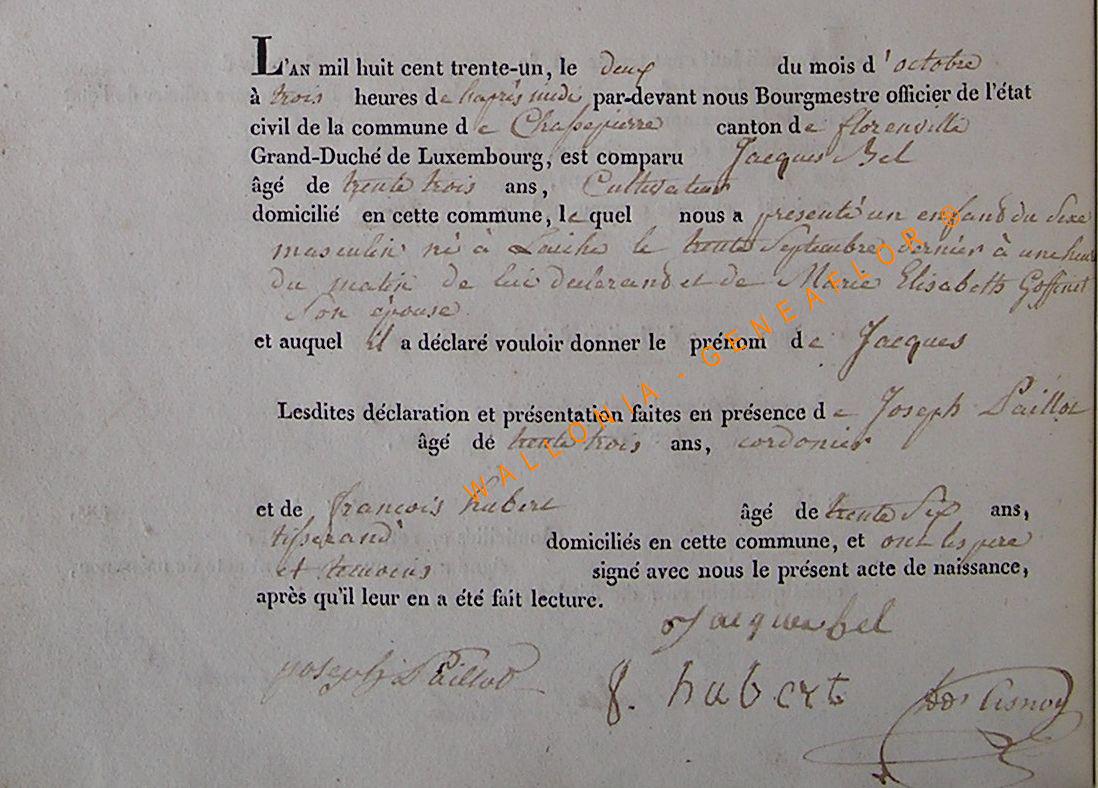 L'AN mil huit cent trente-un, le deux du mois d'octobre
à trois heures de l'après midi par-devant nous Bourgmestre officier de l'état
civil de la commune de Chassepierre canton de florenville
Grand-Duché de Luxembourg, est comparu Jacques Bel
âgé de trente trois ans, Cultivateur
domicilié en cette commune, lequel nous a presenté un enfand du Sexe
masculin né à Laiche le trente Septembre dernier à une heure
du matin de lui declarand et de Marie Elisabeth Goffinet
Son épouse
et auquel il a déclaré vouloir donner le prénom de Jacques
Lesdites déclaration et présentation faites en présence de Joseph Paillot
âgé de trente trois ans, cordonier
et de françois hubert âgé de trente Six ans,
tisserand domiciliés en cette commune, et ont les pere
et temoins signé avec nous le présent acte de naissance,
après qu'il leur en a été fait lecture.
Jacques bel
Joseph Paillot
f. hubert
WALLONIA - GENEAFLOR ®